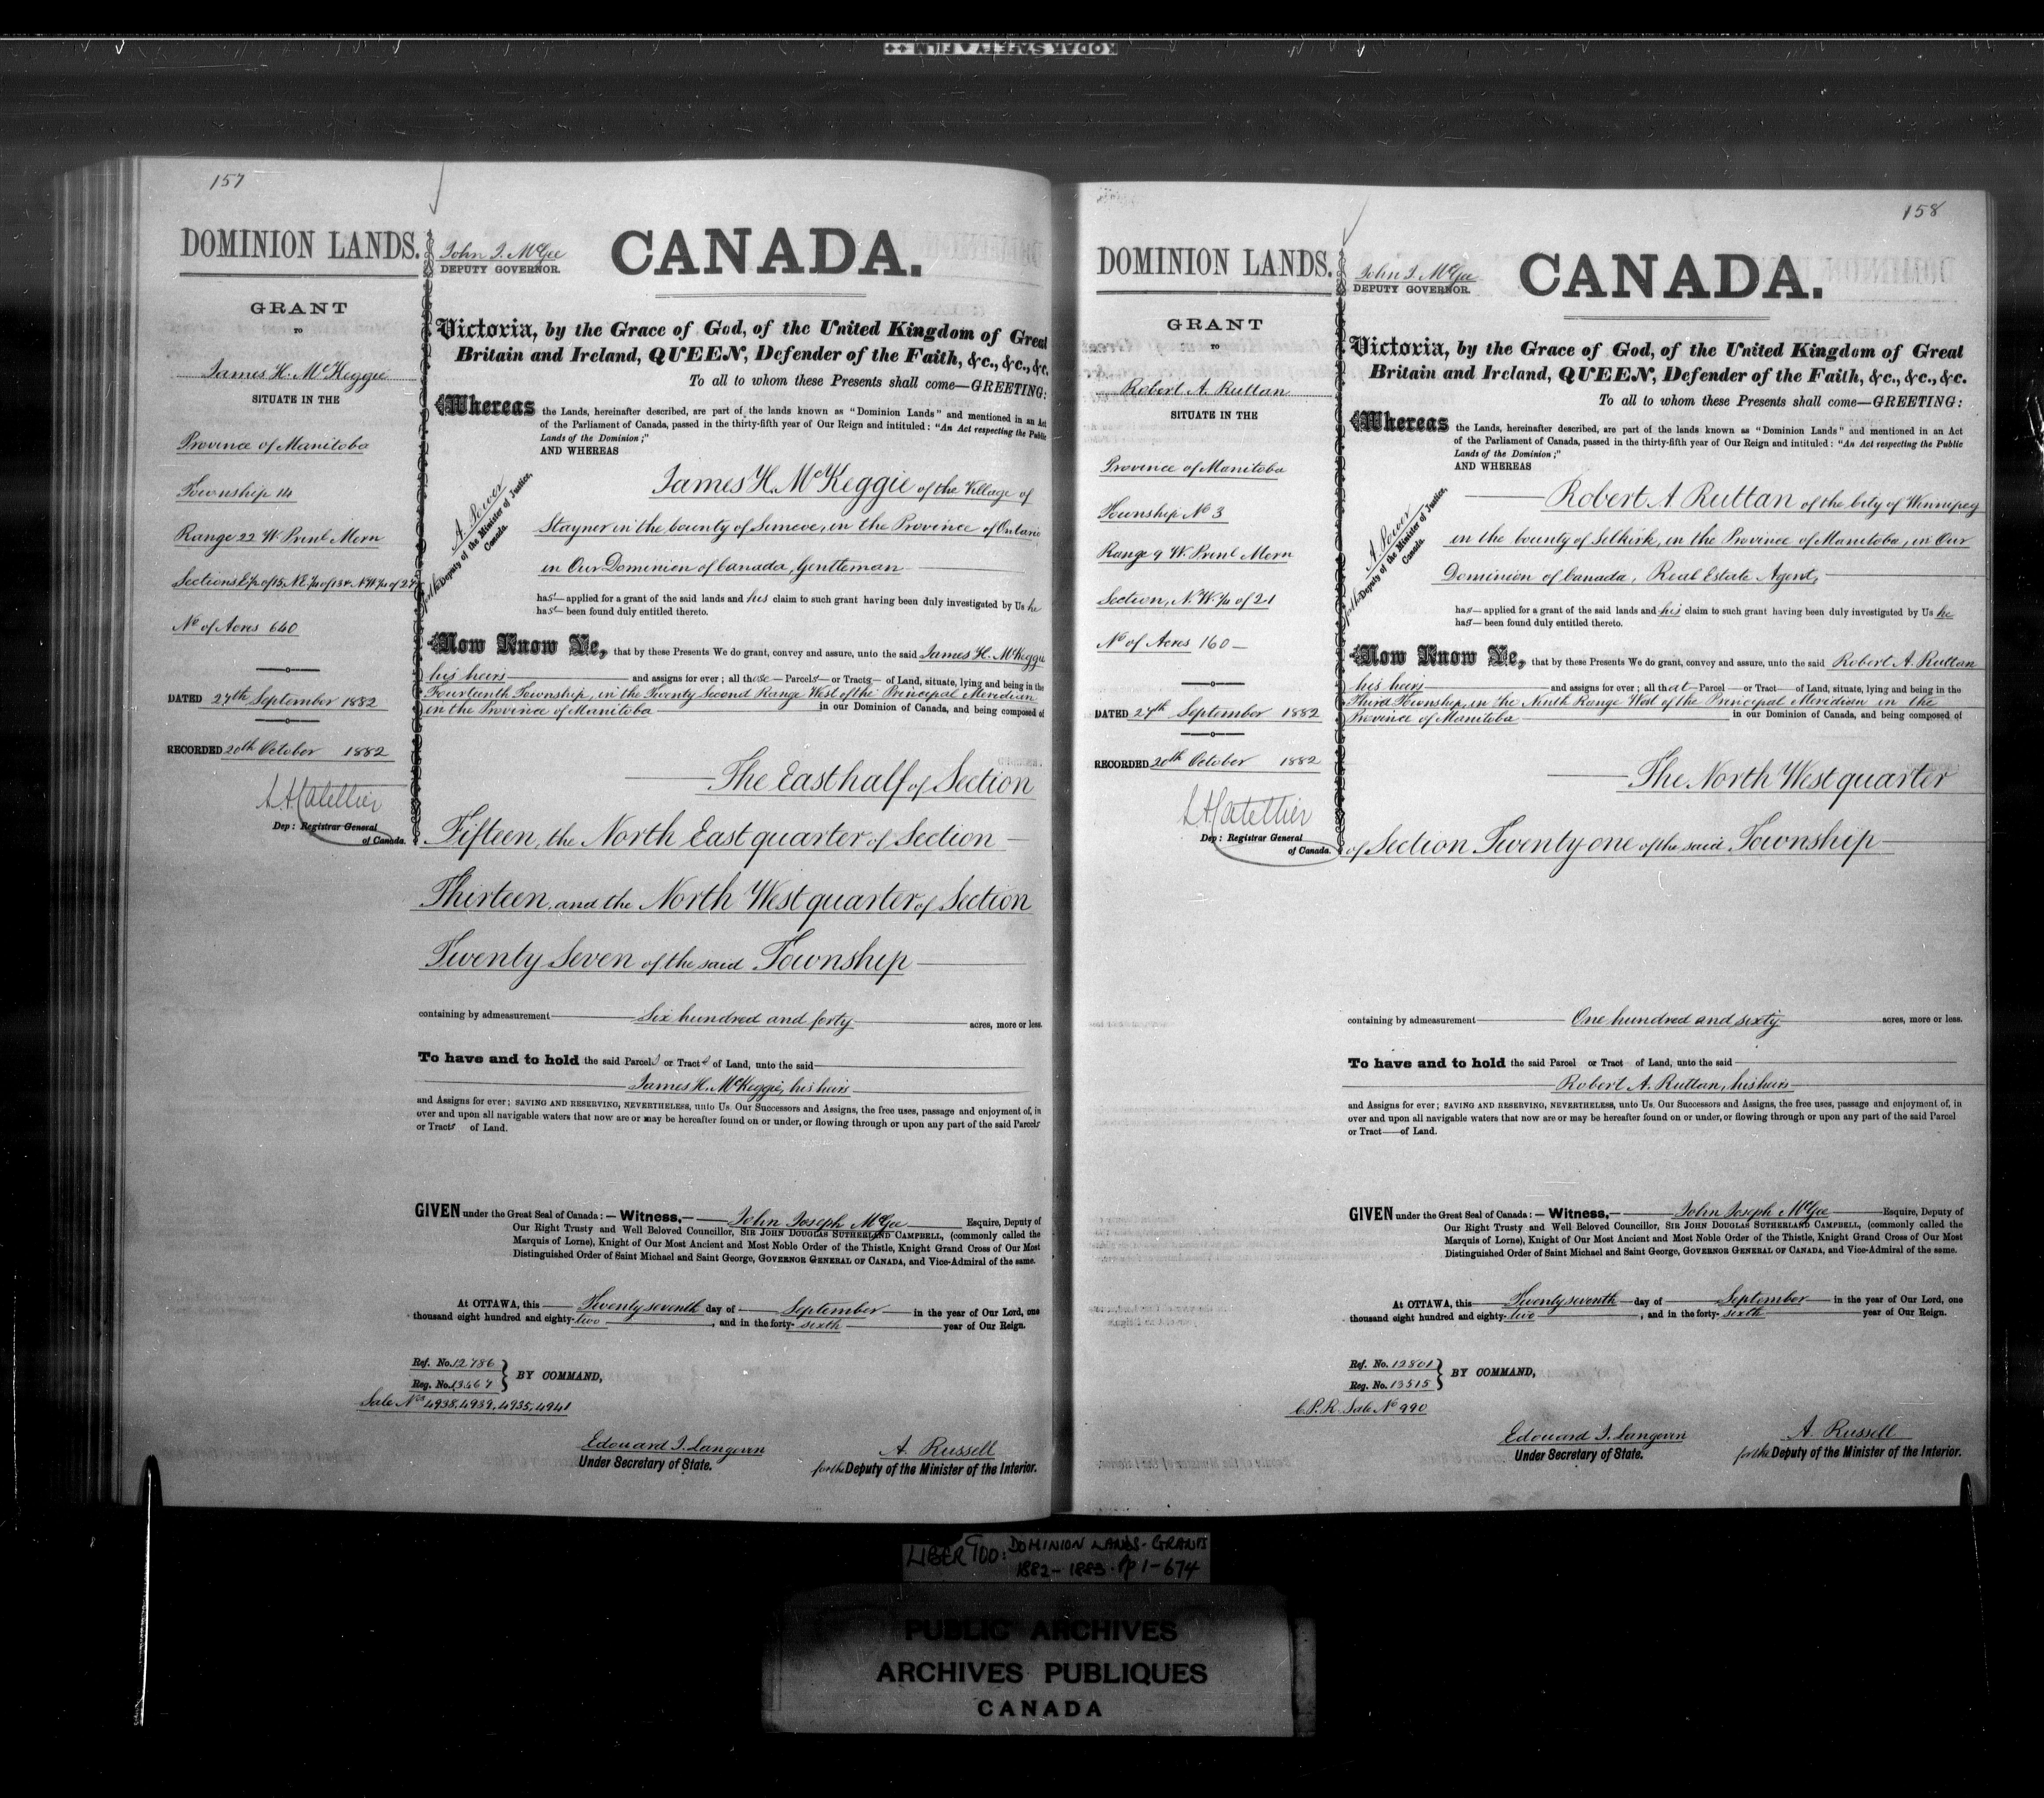 KODAK SAFETY ▲ FILM ++
157
DOMINION LANDS.
GRANT
TO
James H. McKeggie
SITUATE IN THE
Province of Manitoba
Township 14
Range 22 W. Prinl Mern
Sections E½ of 15, N.E.¼ of 13 & N.W¼ of 27
No of Acres 640
DATED 27th September 1882
RECORDED 20th October 1882
Dep: Registrar General
of Canada.
John J. McGee
DEPUTY GOVERNOR.
CANADA.
Victoria, by the Grace of God, of the United Kingdom of Great
Britain and Ireland, QUEEN, Defender of the Faith, &c., &c., &c.
To all to whom these Presents shall come—GREETING:
Whereas the Lands, hereinafter described, are part of the lands known as "Dominion Lands" and mentioned in an Act
of the Parliament of Canada, passed in the thirty-fifth year of Our Reign and intituled: "An Act respecting the Public
Lands of the Dominion;"
AND WHEREAS
A. Power
for the Deputy of the Minister of Justice,
Canada.
James H. McKeggie of the Village of
Stayner in the County of Simcoe, in the Province of Ontario
in Our Dominion of Canada, Gentleman
has applied for a grant of the said lands and his claim to such grant having been duly investigated by Us he
has been found duly entitled thereto.
Now Know Ye, that by these Presents We do grant, convey and assure, unto the said James H. McKeggie
his heirs and assigns for ever; all those Parcels or Tracts of Land, situate, lying and being in the
Fourteenth Township, in the Twenty Second Range West of the Principal Meridian
in the Province of Manitoba in our Dominion of Canada, and being composed of
The East half of Section
Fifteen, the North East quarter of Section
Thirteen, and the North West quarter of Section
Twenty Seven of the said Township
containing by admeasurement Six hundred and forty acres, more or less.
To have and to hold the said Parcels or Tracts of Land, unto the said
James H. McKeggie, his heirs
and Assigns for ever; SAVING AND RESERVING, NEVERTHELESS, unto Us. Our Successors and Assigns, the free uses, passage and enjoyment of, in
over and upon all navigable waters that now are or may be hereafter found on or under, or flowing through or upon any part of the said Parcels
or Tracts of Land.
GIVEN under the Great Seal of Canada:—Witness,— John Joseph McGee Esquire, Deputy of
Our Right Trusty and Well Beloved Councillor, SIR JOHN DOUGLAS SUTHERLAND CAMPBELL, (commonly called the
Marquis of Lorne), Knight of Our Most Ancient and Most Noble Order of the Thistle, Knight Grand Cross of Our Most
Distinguished Order of Saint Michael and Saint George, GOVERNOR GENERAL OF CANADA, and Vice-Admiral of the same.
At OTTAWA, this Twenty seventh day of September in the year of Our Lord, one
thousand eight hundred and eighty-two, and in the forty-sixth year of Our Reign.
Ref. No. 12786
Reg. No. 13467
BY COMMAND,
Sale Nos 4938, 4939, 4935, 4941
Edouard J. Langevin
Under Secretary of State.
A. Russell
for the Deputy of the Minister of the Interior.
158
DOMINION LANDS.
GRANT
TO
Robert A. Ruttan
SITUATE IN THE
Province of Manitoba
Township No 3
Range 9 W. Prinl Mern
Section, N.W.¼ of 21
No of Acres 160
DATED 27th September 1882
RECORDED 20th October 1882
Dep: Registrar General
of Canada.
John J. McGee
DEPUTY GOVERNOR.
CANADA.
Victoria, by the Grace of God, of the United Kingdom of Great
Britain and Ireland, QUEEN, Defender of the Faith, &c., &c., &c.
To all to whom these Presents shall come—GREETING:
Whereas the Lands, hereinafter described, are part of the lands known as "Dominion Lands" and mentioned in an Act
of the Parliament of Canada, passed in the thirty-fifth year of Our Reign and intituled: "An Act respecting the Public
Lands of the Dominion;"
AND WHEREAS
A. Power
for the Deputy of the Minister of Justice,
Canada.
Robert A. Ruttan of the City of Winnipeg
in the County of Selkirk, in the Province of Manitoba, in Our
Dominion of Canada, Real Estate Agent,
has applied for a grant of the said lands and his claim to such grant having been duly investigated by Us he
has been found duly entitled thereto.
Now Know Ye, that by these Presents We do grant, convey and assure, unto the said Robert A. Ruttan
his heirs and assigns for ever; all that Parcel or Tract of Land, situate, lying and being in the
Third Township, in the Ninth Range West of the Principal Meridian in the
Province of Manitoba in our Dominion of Canada, and being composed of
The North West quarter
of Section Twenty one of the said Township
containing by admeasurement One hundred and sixty acres, more or less.
To have and to hold the said Parcel or Tract of Land, unto the said
Robert A. Ruttan, his heirs
and Assigns for ever; SAVING AND RESERVING, NEVERTHELESS, unto Us. Our Successors and Assigns, the free uses, passage and enjoyment of, in
over and upon all navigable waters that now are or may be hereafter found on or under, or flowing through or upon any part of the said Parcel
or Tract of Land.
GIVEN under the Great Seal of Canada:—Witness,— John Joseph McGee Esquire, Deputy of
Our Right Trusty and Well Beloved Councillor, SIR JOHN DOUGLAS SUTHERLAND CAMPBELL, (commonly called the
Marquis of Lorne), Knight of Our Most Ancient and Most Noble Order of the Thistle, Knight Grand Cross of Our Most
Distinguished Order of Saint Michael and Saint George, GOVERNOR GENERAL OF CANADA, and Vice-Admiral of the same.
At OTTAWA, this Twenty seventh day of September in the year of Our Lord, one
thousand eight hundred and eighty-two, and in the forty-sixth year of Our Reign.
Ref. No. 12801
Reg. No. 13515
BY COMMAND,
C.P.R. Sale No 990
Edouard J. Langevin
Under Secretary of State.
A. Russell
for the Deputy of the Minister of the Interior.
LIBER 900: DOMINION LANDS-GRANTS
1882-1883. pp 1-674
PUBLIC ARCHIVES
ARCHIVES PUBLIQUES
CANADA